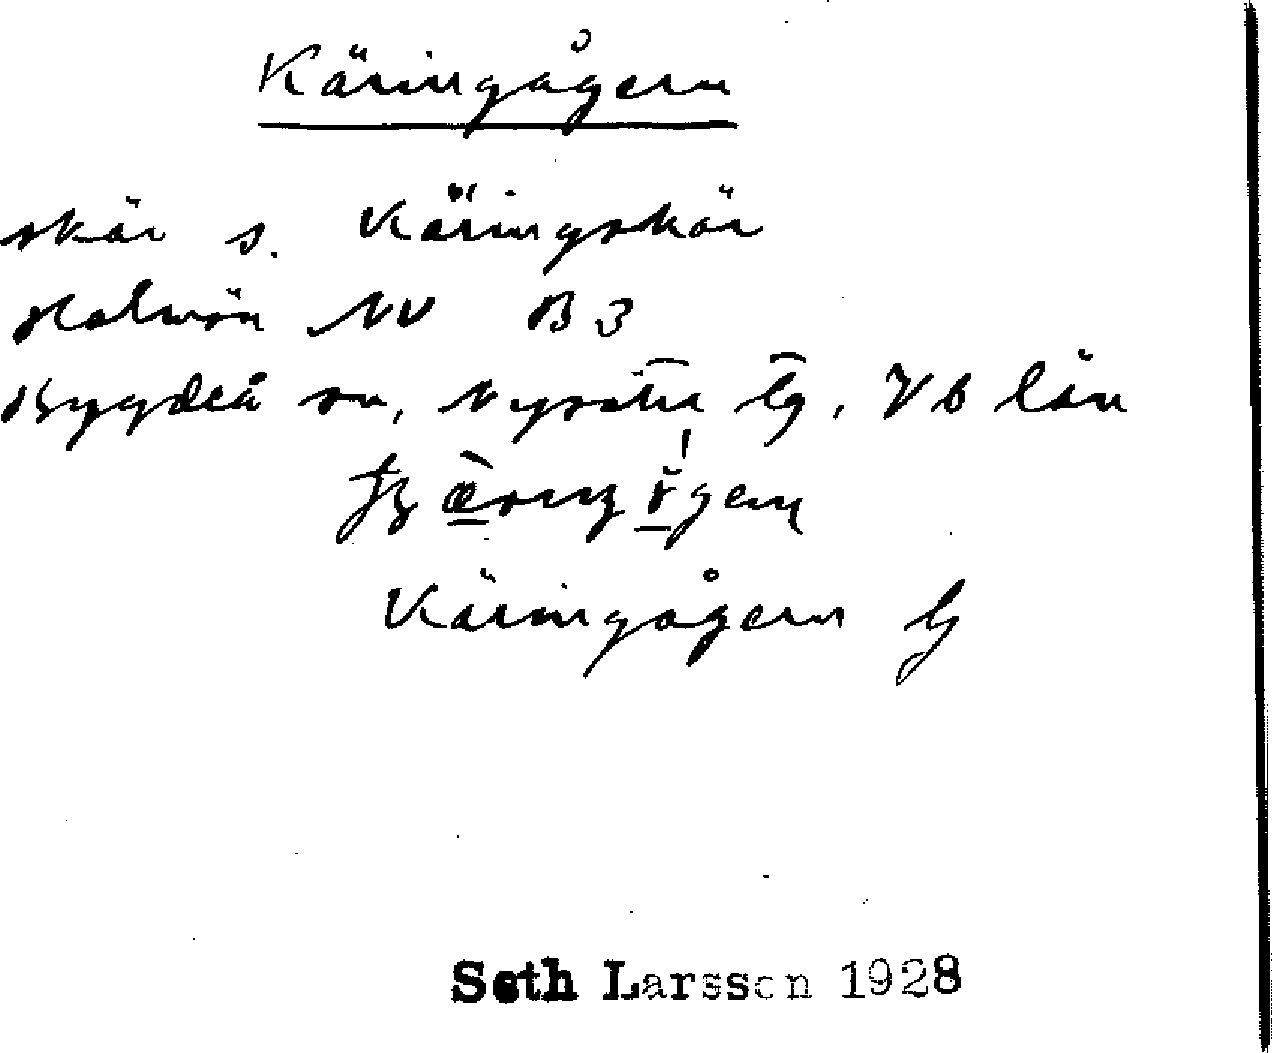 Käringågern
skär s. Käringskär
Holmön NV B3
Bygdeå sn, Nysätra tg, Vb län
Käringågern G
Seth Larsson 1928